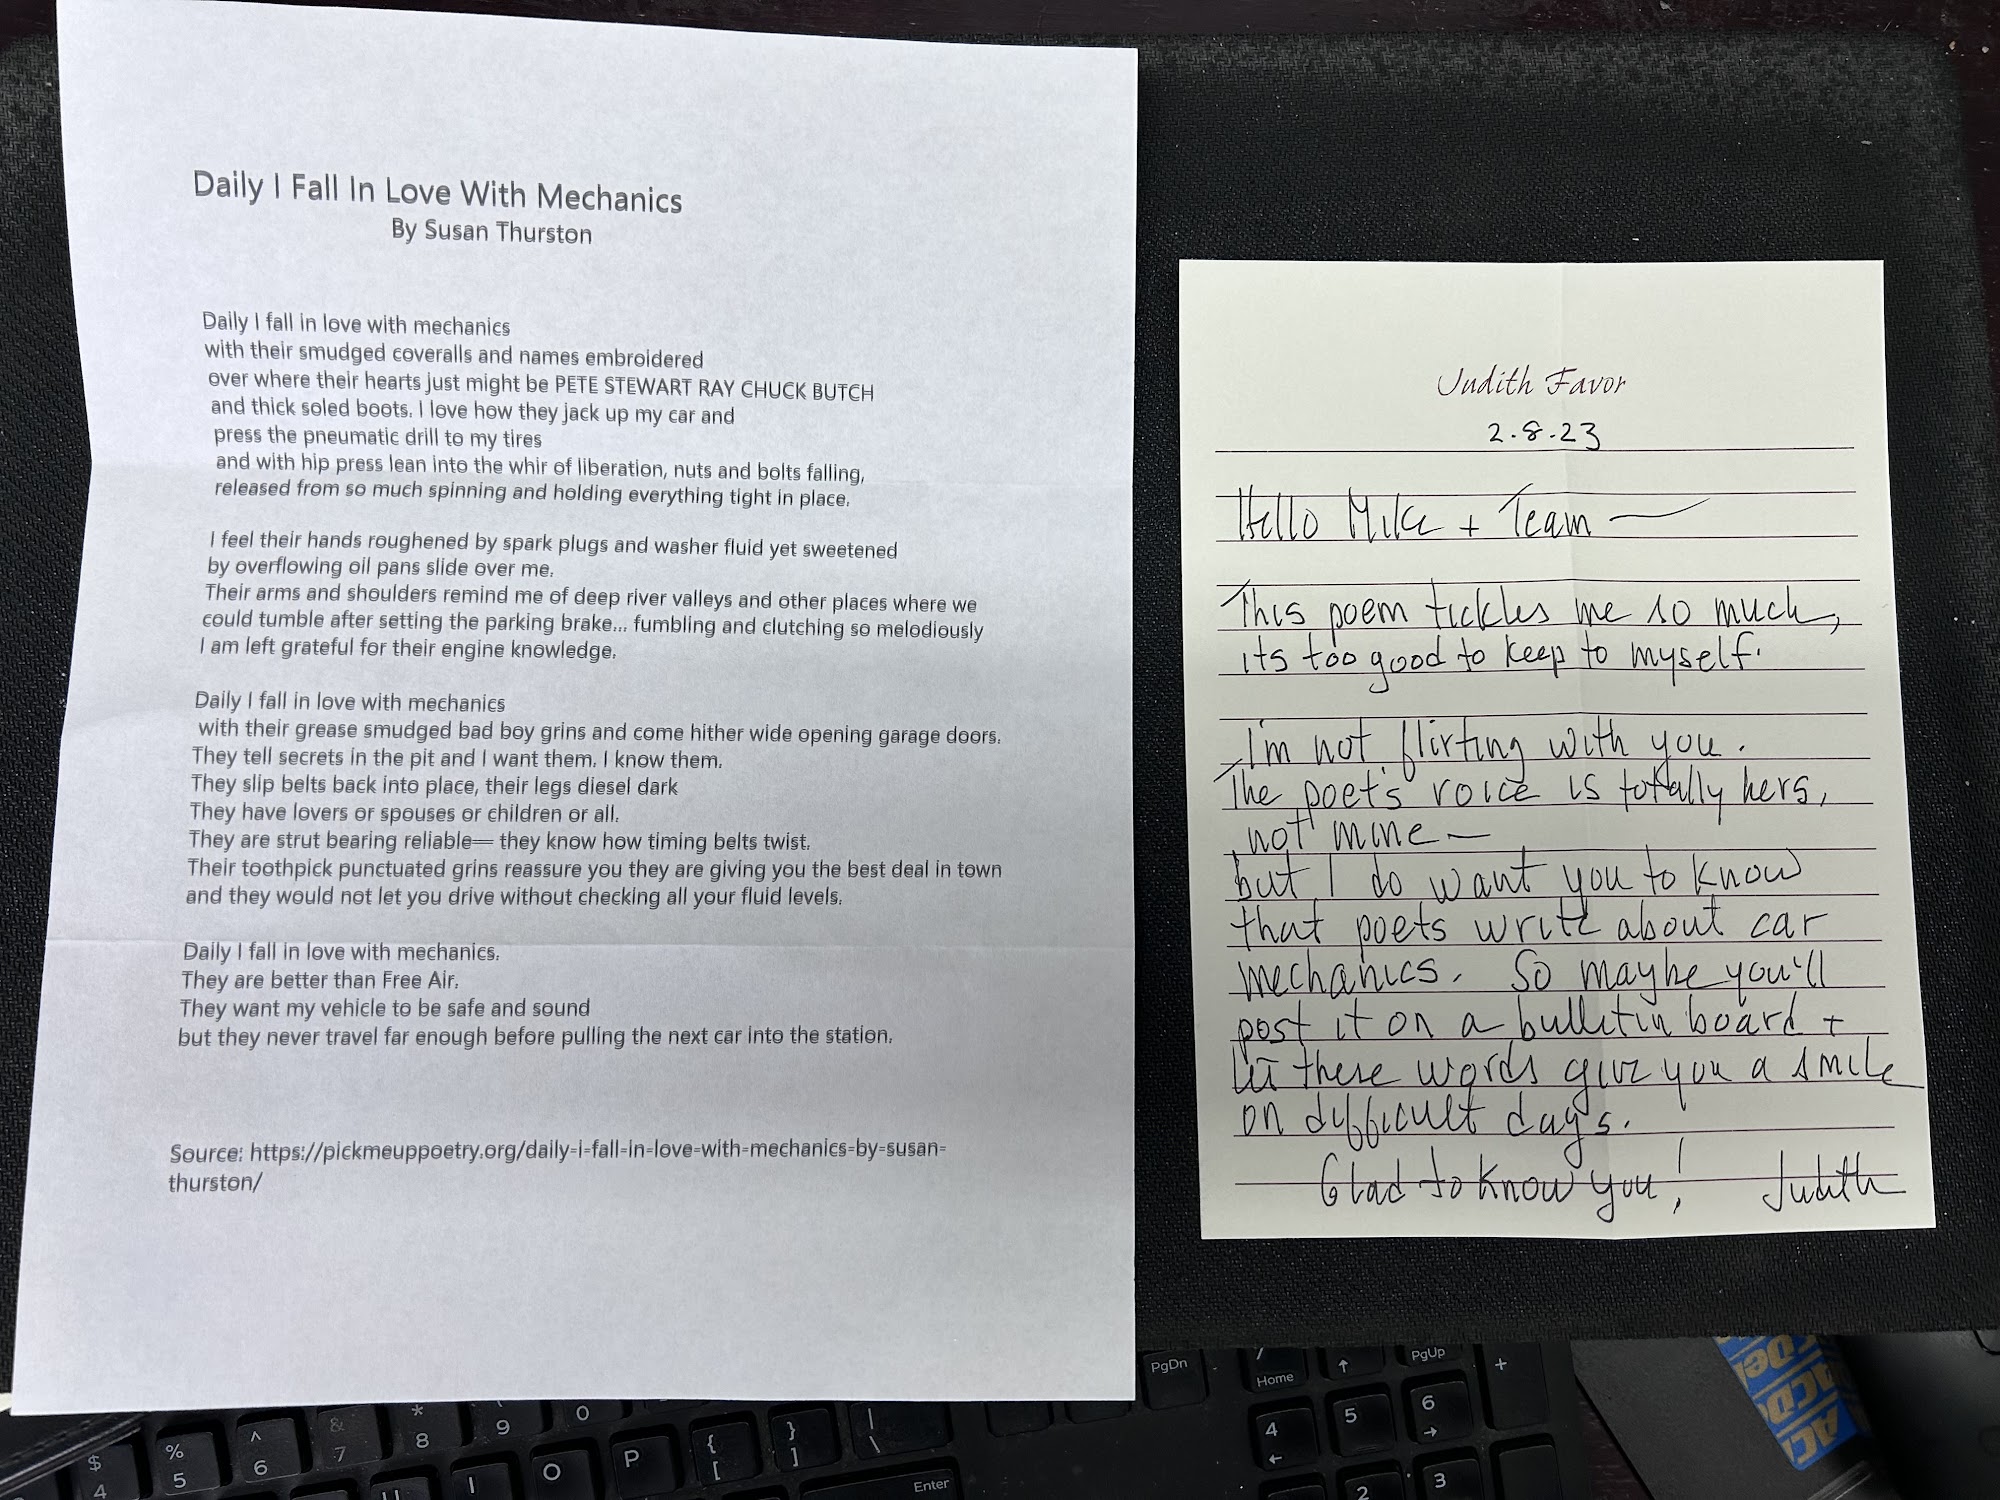 Daily I Fall In Love With Mechanics
By Susan Thurston
Daily I fall in love with mechanics
with their smudged coveralls and names embroidered
over where their hearts just might be PETE STEWART RAY CHUCK BUTCH
and thick soled boots. I love how they jack up my car and
press the pneumatic drill to my tires
and with hip press lean into the whir of liberation, nuts and bolts falling,
released from so much spinning and holding everything tight in place.
I feel their hands roughened by spark plugs and washer fluid yet sweetened
by overflowing oil pans slide over me.
Their arms and shoulders remind me of deep river valleys and other places where we
could tumble after setting the parking brake... fumbling and clutching so melodiously
I am left grateful for their engine knowledge.
Daily I fall in love with mechanics
with their grease smudged bad boy grins and come hither wide opening garage doors.
They tell secrets in the pit and I want them. I know them.
They slip belts back into place, their legs diesel dark
They have lovers or spouses or children or all.
They are strut bearing reliable— they know how timing belts twist.
Their toothpick punctuated grins reassure you they are giving you the best deal in town
and they would not let you drive without checking all your fluid levels.
Daily I fall in love with mechanics.
They are better than Free Air.
They want my vehicle to be safe and sound
but they never travel far enough before pulling the next car into the station.
Source: https://pickmeuppoetry.org/daily-i-fall-in-love-with-mechanics-by-susan-
thurston/
Judith Favor
2.8.23
Hello Mike + Team —
This poem tickles me so much,
its too good to keep to myself.
I'm not flirting with you.
The poet's voice is totally hers,
not mine —
but I do want you to know
that poets write about car
mechanics. So maybe you'll
post it on a bulletin board +
let these words give you a smile
on difficult days.
Glad to know you! Judith
PgDn
/
Home
↑
PgUp
+
$ 4
% 5
^ 6
& 7
* 8
( 9
0
4 ←
5
6 →
U
I
O
P
{ [
} ]
| \
Enter
2
3